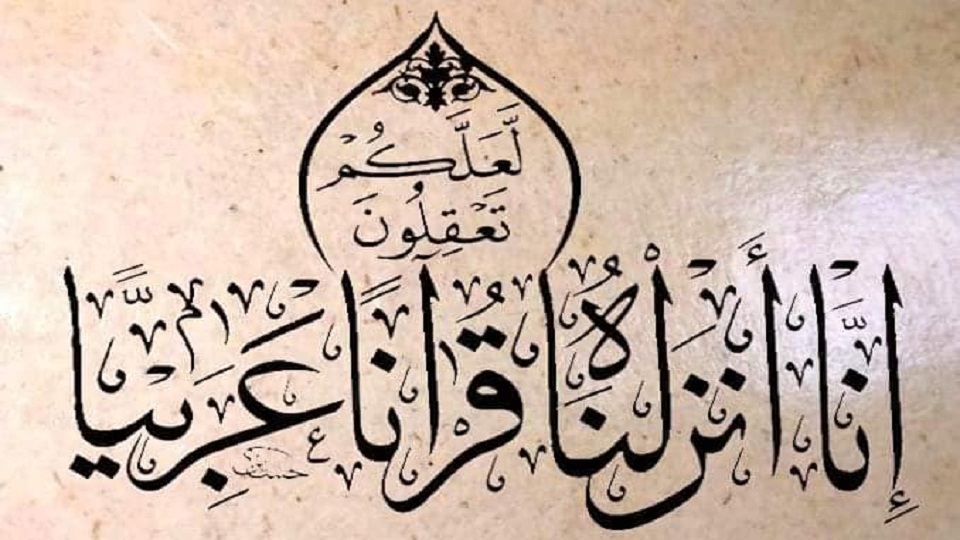 إِنَّا أَنزَلْنَاهُ قُرْآنًا عَرَبِيًّا
لَّعَلَّكُمْ
تَعْقِلُونَ